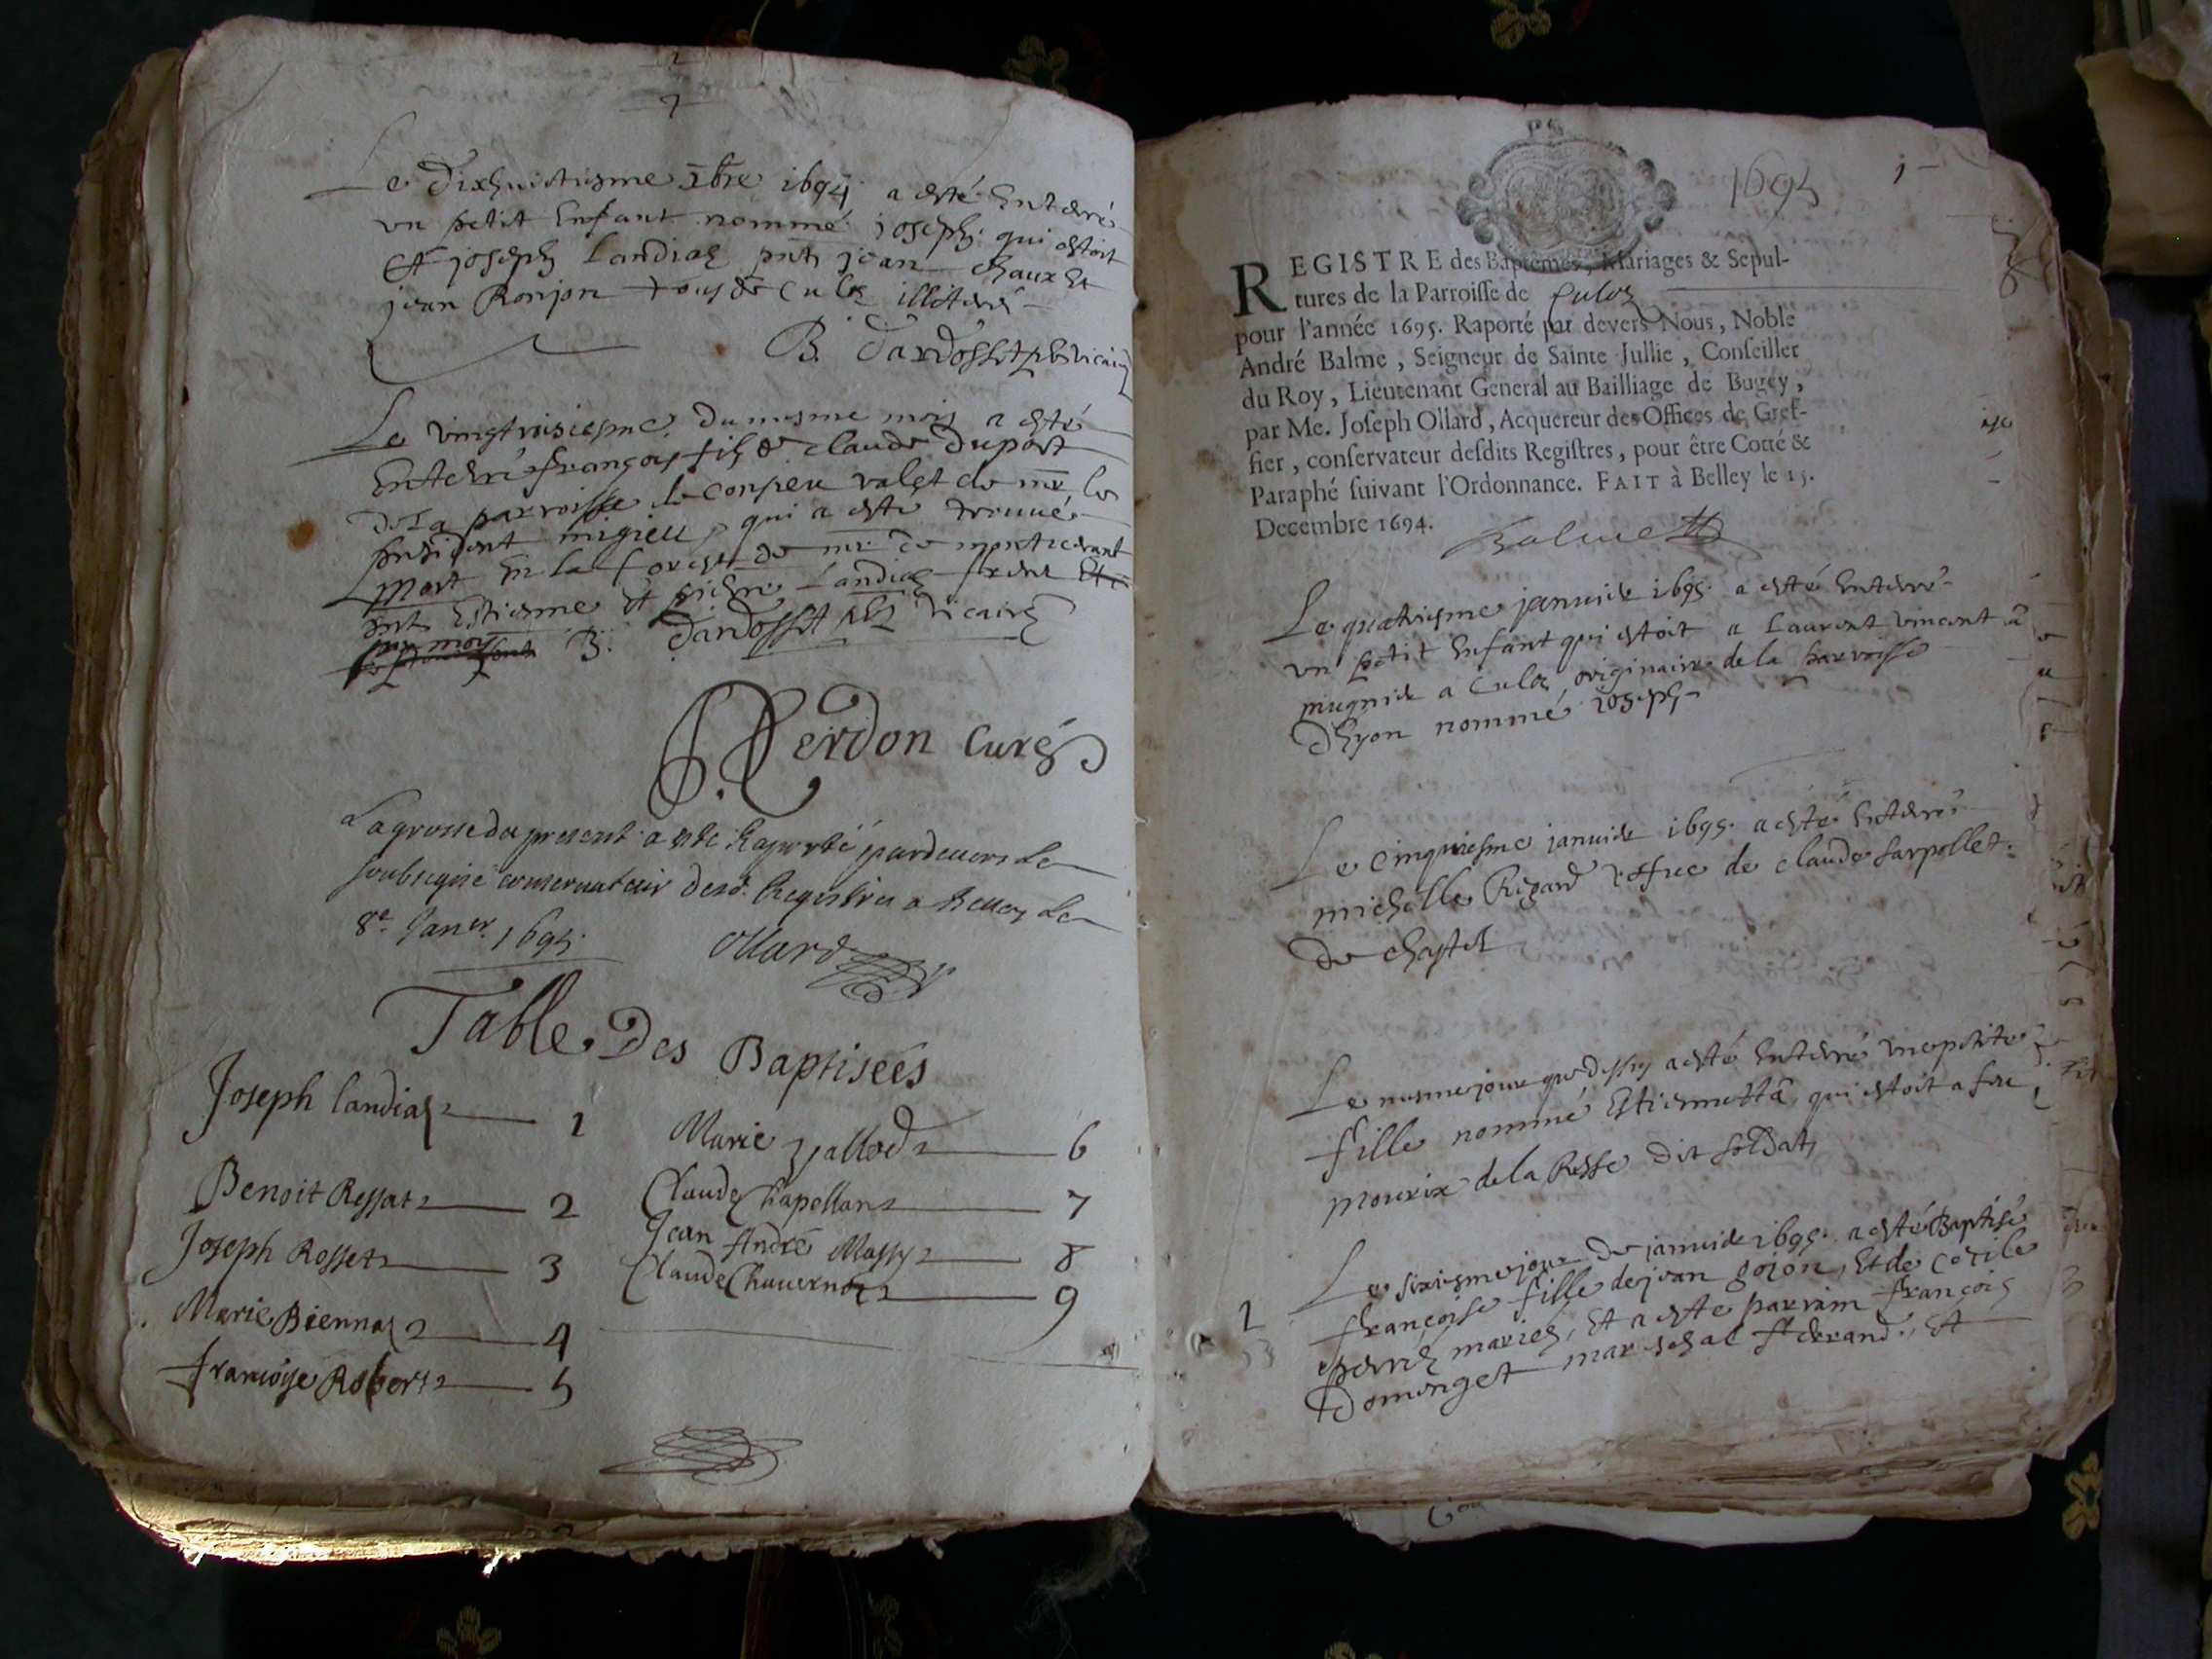 7
Le dixhuictiesme xbre 1694 a esté Enterré
un petit Enfant nommé joseph qui estoit
et joseph Landiaz pnts jean chaux et
jean Ronjon tous de Culoz illiterés
B. Dardosset vicaire
Le vingtroisiesme du mesme mois a esté
Enterré françois fils de claude Duport
de la parroisse de conpeu valet de mr le
president migieu, qui a esté trouué
mort En la forest de mr de
pnts Estienne et pierre Landiaz freres
B. Dardosset pbr vicaire
Perdon curé
La grosse du present a esté Raporté pardeuers Le
soubsigné conseruateur desd. Registres a Belley Le
8e Janer. 1695.
Ollard
Table Des Baptisées
Joseph landiaz 1
Benoit Ressat 2
Joseph Rosset 3
Marie Biennaz 4
francoise Robert 5
Marie 6
Claude Chapellan 7
Jean André Massy 8
Claude 9
1695
1
REGISTRE des Baptêmes, Mariages & Sepul-
tures de la Parroisse de Culoz
pour l'année 1695. Raporté par devers Nous, Noble
André Balme, Seigneur de Sainte Jullie, Conseiller
du Roy, Lieutenant General au Bailliage de Bugey,
par Me. Joseph Ollard, Acquereur des Offices de Gref-
fier, conservateur desdits Registres, pour être Cotté &
Paraphé suivant l'Ordonnance. FAIT à Belley le 15.
Decembre 1694.
Balme
Le quatriesme januier 1695. a esté Enterré
un petit Enfant qui estoit a Laurent vincent
mugnier a Culoz originaire de la parroisse
dhyon nommé joseph
Le cinquiesme januier 1695. a esté Enterré
michelle Rigard veffue de claude sarpollet
de chastel
Le mesme jour que dessus a esté Enterré une petite
fille nommé Estiennetta, qui estoit a feu
mourix de la Resse dit soldat
1
Le sixiesme jour de januier 1695. a esté Baptisé
françoise fille de jean gojon, Et de cecile
mariés, Et a esté parrain françois
Dominget mareschal ferrand, Et